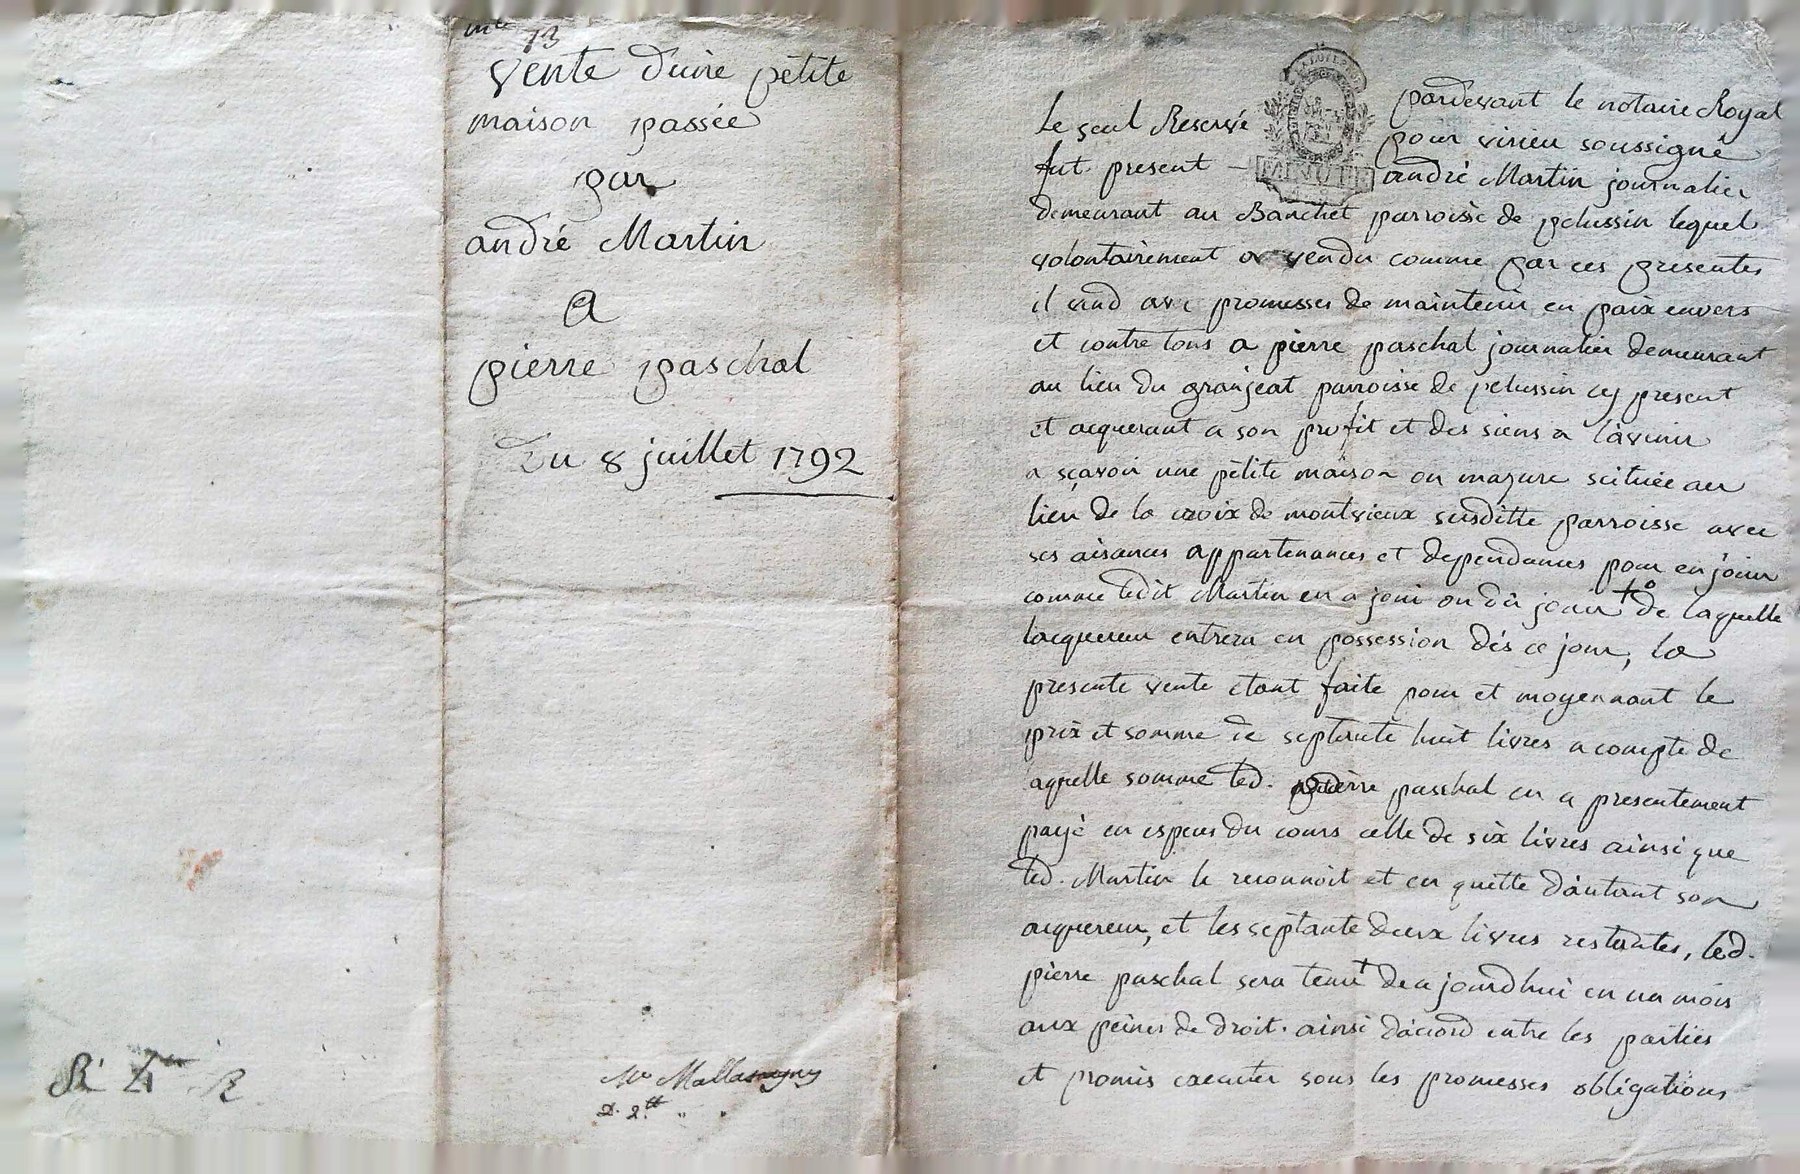 13
vente d'une petite
maison passée
par
andré Martin
a
pierre paschal
Du 8 juillet 1792
Me
2. 2tt
pardevant le notaire Royal
Le seul Reservé
pour virieu soussigné
fut present andré Martin journalier
demeurant au Banchet parroisse de pelussin lequel
volontairement a vendu comme par ces presentes
il vend avec promesses de maintenir en paix envers
et contre tous a pierre paschal journalier demeurant
au lieu du granjeat parroisse de pelussin cy present
et acquerant a son profit et des siens a l'avenir
a sçavoir une petite maison ou mazure scituée au
lieu de la croix de montvieux susditte parroisse avec
ses aisances appartenances et dependances pour en jouir
comme ledit Martin en a joui ou dû jouir + de laquelle
lacquereur entrera en possession dés ce jour, la
presente vente etant faite pour et moyennant le
prix et somme de septante huit livres a compte de
aquelle somme led. pierre paschal en a presentement
payé en especes du cours celle de six livres ainsi que
led. Martin le reconnoit et en quitte d'autant son
acquereur, et les septante deux livres restantes, led.
pierre paschal sera tenu + de a jourdhui en un mois
aux peines de droit. ainsi d'acord entre les parties
et promis executer sous les promesses obligations